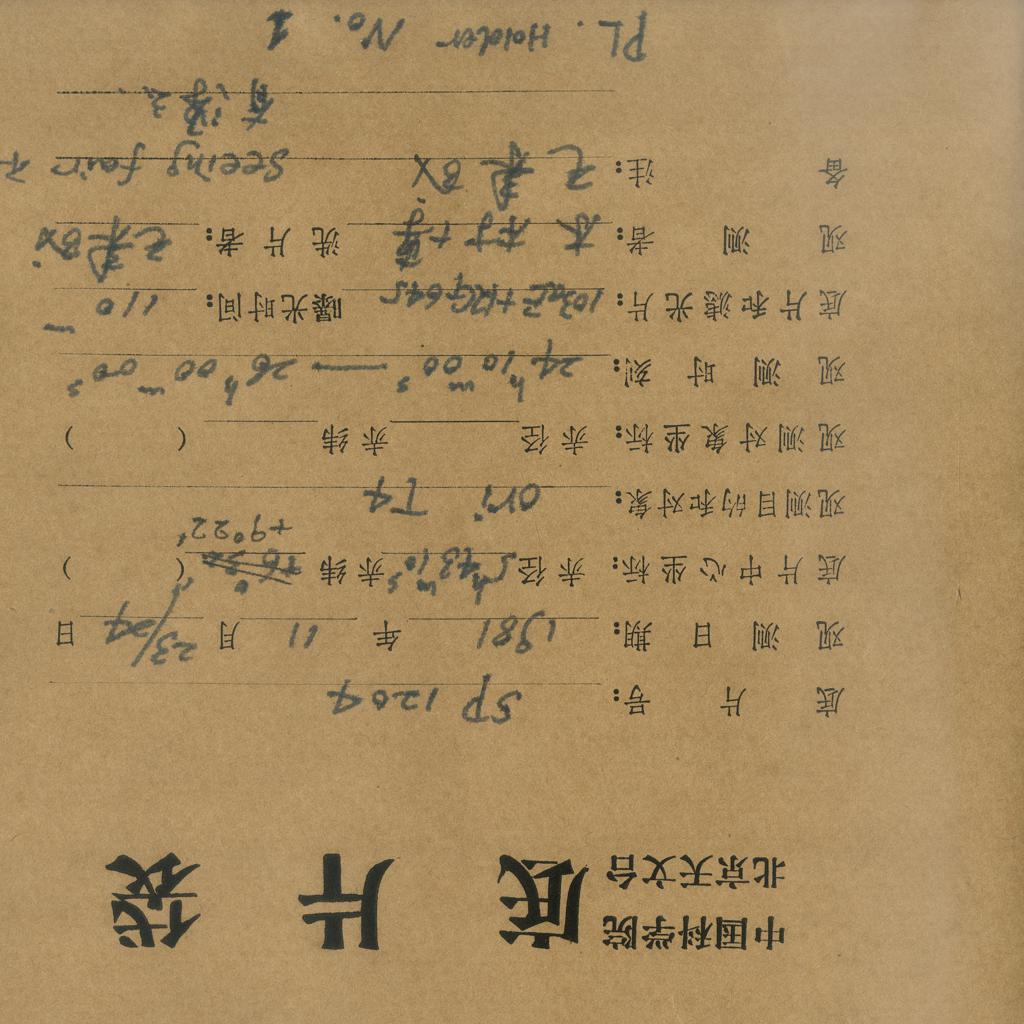 中国科学院
北京天文台
底片袋
底片号: SP 1204
观测日期: 1981 年 11 月 23/24 日
+9°22'
底片中心坐标: 赤径 5h43m10s 赤纬 ( )
观测目的和对象: Ori T4
观测对象坐标: 赤径 赤纬 ( )
观测时刻: 24h10m00s — 26h00m00s
底片和滤光片: 103aE+RG645 曝光时间: 110m
观测者: 洗片者:
备注: Seeing fair
有
PL. Holder No. 1